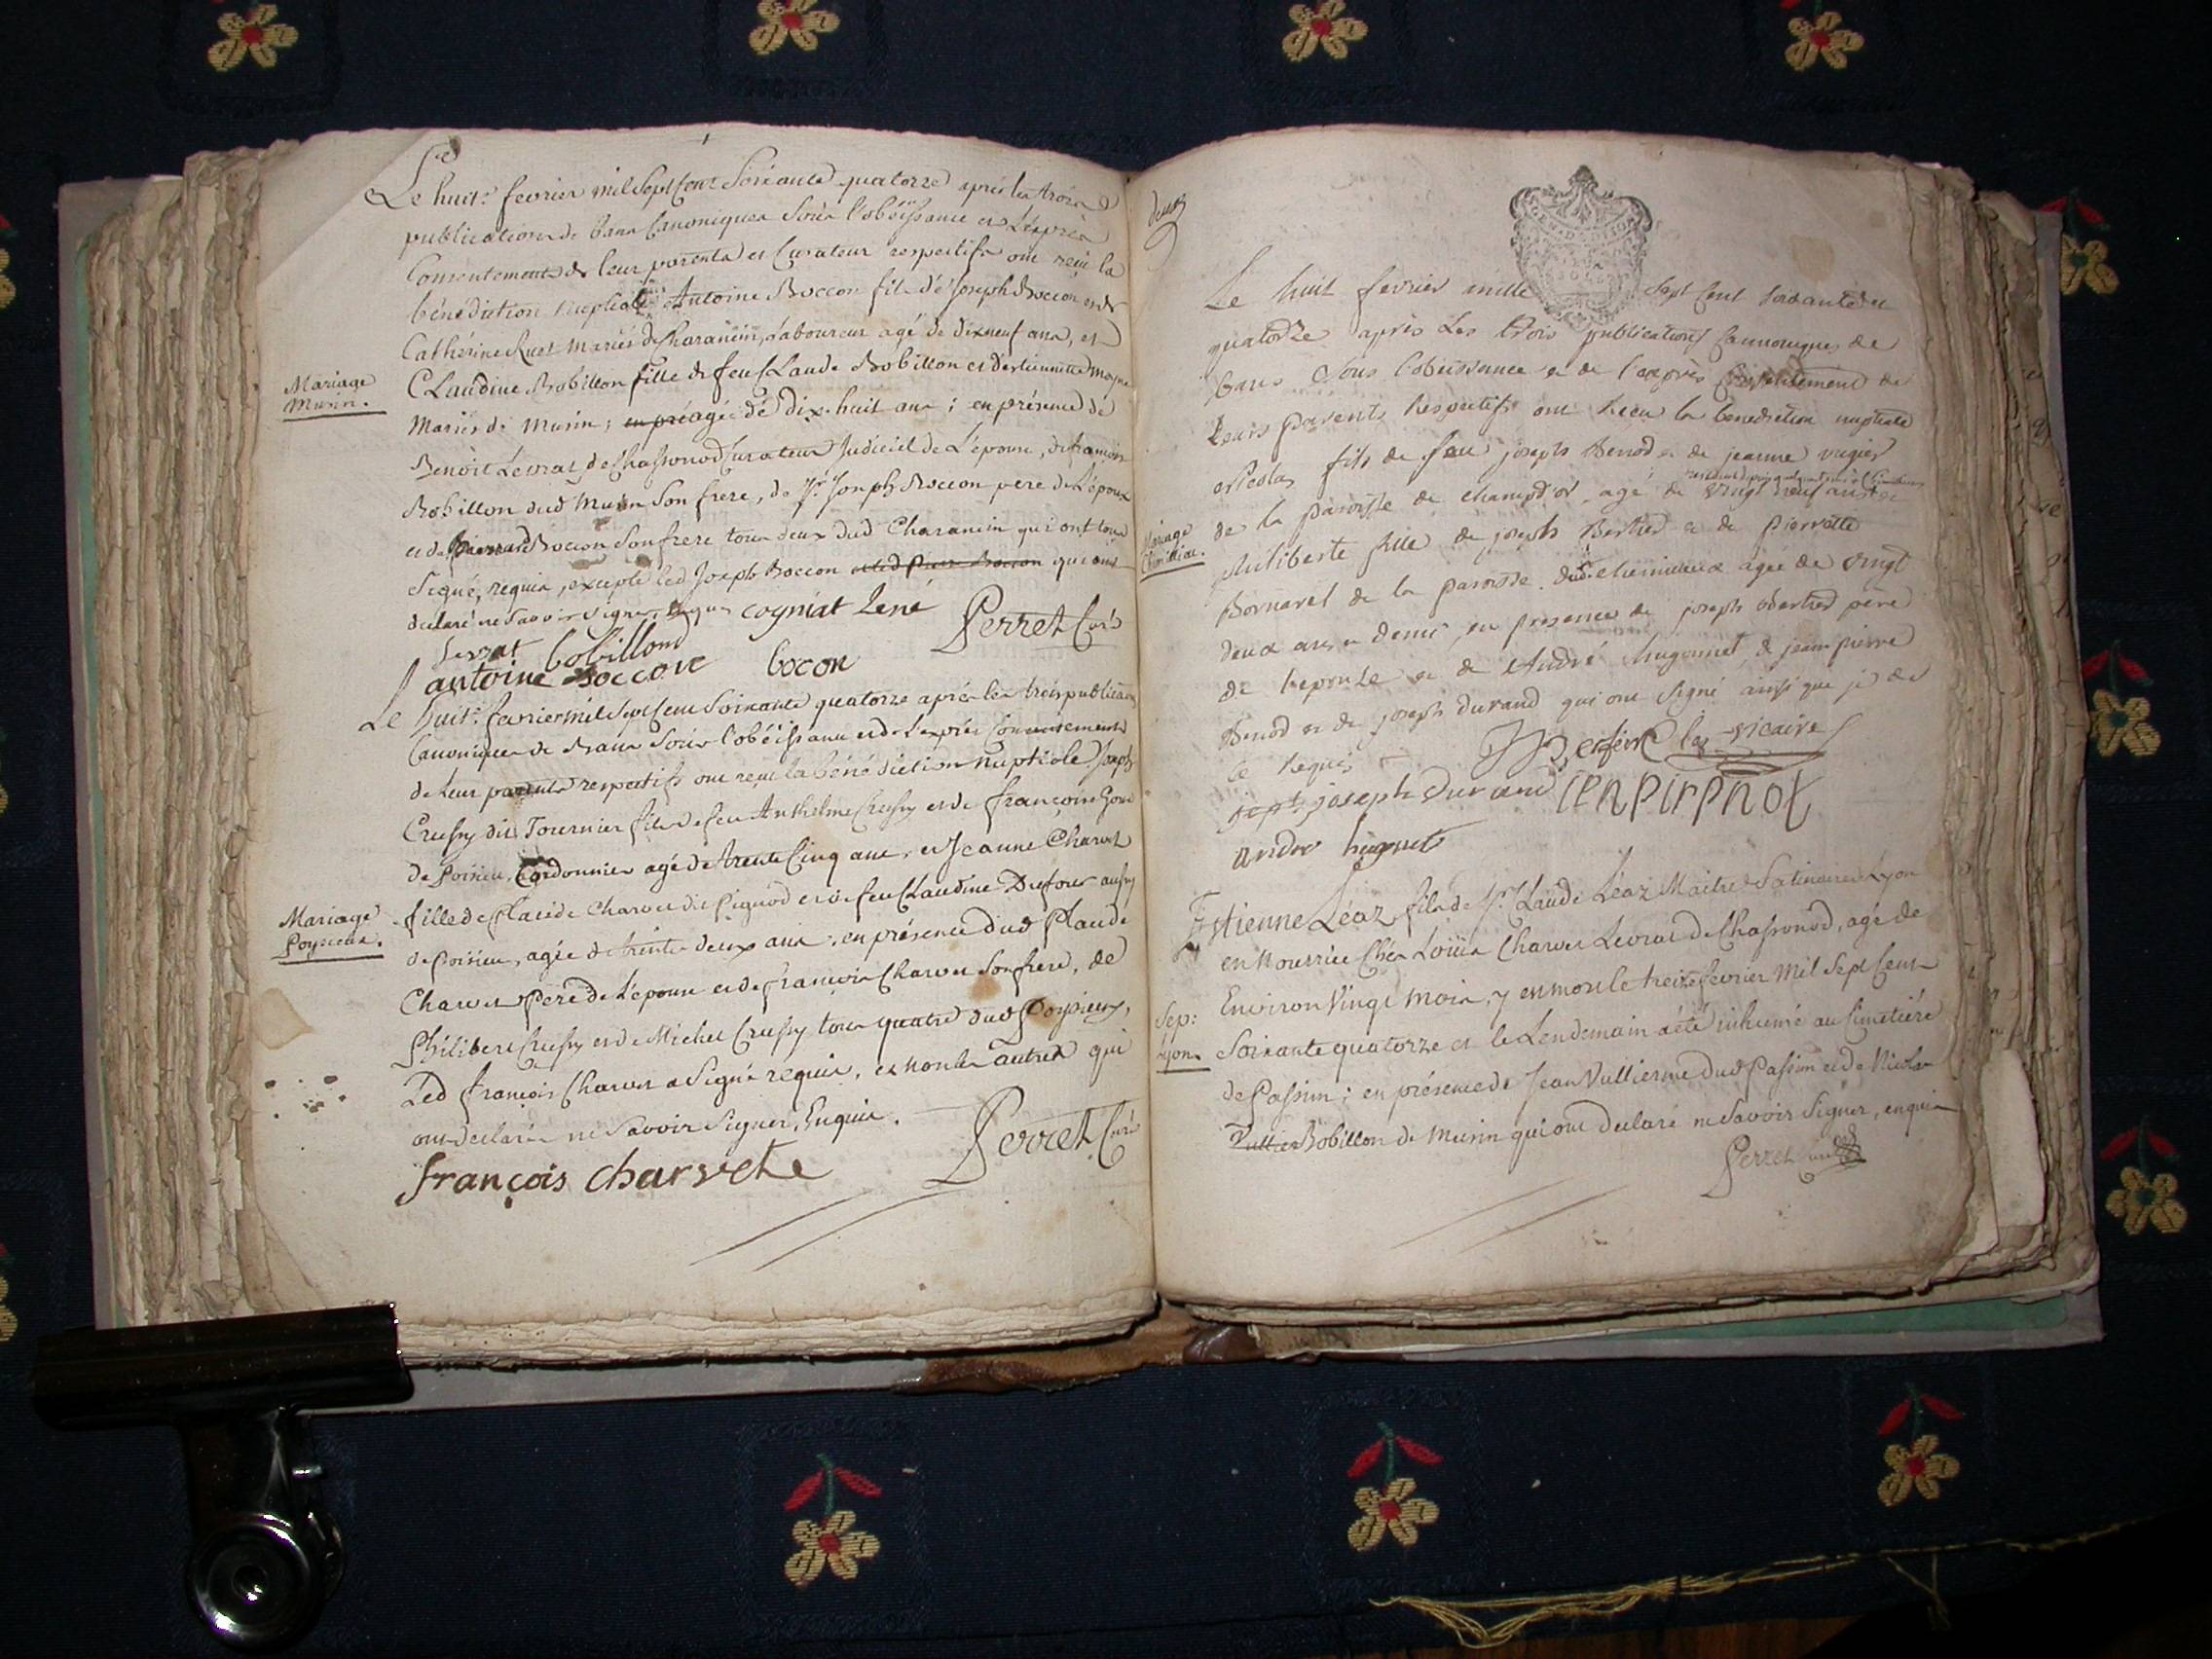 Le huit.e fevrier mil sept cent soixante quatorze après les trois
publications de bans canoniques sous l'obéissance et L'exprès
Consentement de leur parents et Curateur respectifs ont reçu la
bénédiction nuptiale Antoine Boccon fils de Joseph Boccon et de
Catherine Ruet mariés de Charancin, Laboureur agé de dixneuf ans, et
Mariage
Musin.
CLaudine Bobillon fille de feu CLaude Bobillon et d'estiennette
Mariés de Musin; agée de dix-huit ans; en présence de
Benoît Levrat de Chassonod Curateur Judiciel de L'épouse, de françois
Bobillon dud Musin son frere, de Sr. Joseph Boccon pere de L'époux
et de Boccon son frere tous deux dud Charancin qui ont tous
signé, requis, excepté led Joseph Boccon qui ont
declaré ne savoir signer, Enquis cogniat René Perret Curé
Levrat bobillond
antoine boccon bocon
Le huit.e fevrier mil sept cent soixante quatorze après les trois publications
Canoniques de Bans sous l'obéissance et de L'exprès Consentement
de Leur parents respectifs ont reçu la bénédiction nuptiale Joseph
Crussy dit Tournier fils de feu Anthelme Crussy et de françoise
de Poisieu, Cordonnier agé de trente Cinq ans, et Jeanne Charvet
Mariage
Poysieux.
fille de Placide Charvet dit Pignod et de feu CLaudine Dufour aussy
de Poisieu, agée de trente deux ans, en présence dud Placide
Charvet Pere de L'épouse et de françois Charvet son frere, de
Philibert Crussy et de Michel Crussy tous quatre dud Poysieux,
Led françois Charvet a signé requis, et non les autres qui
ont declarés ne savoir signer, Enquis.
françois charvete Perret Curé
deux
Le huit fevrier mille sept cent soixante et
quatorze après Les trois publications cannoniques de
bans sous l'obeissance et de l'exprès consentement de
leurs parents respectifs ont recu la benediction nuptiale
Nicolas fils de feu joseph Benod et de jeanne
de la paroisse de champd'or agé de vingt neuf ans et
Mariage
Philiberte fille de joseph Berthet et de pierrette
Bornarel de la paroisse dud. agée de vingt
deux ans et demi en presence de joseph Berthet père
de lepouse et de André hugonnet, de jean pierre
Benod et de joseph durand qui ont signé ainsi que je de
ce requis vicaire
joseph durand
andre
Estienne Léaz fils de Sr. Claude Léaz Maître Satinaire de Lyon
en nourrice Chés Louis Charvet Levrat de Chassonod, agé de
Environ Vingt mois, y est mort le treize fevrier mil sept cent
Sep:
Lyon.
soixante quatorze et le Lendemain a été inhumé au Cimetière
de Passin; en présence de Jean Vullierme dud Passin et de Nicolas
Bobillon de Musin qui ont declaré ne savoir signer, enquis
Perret curé